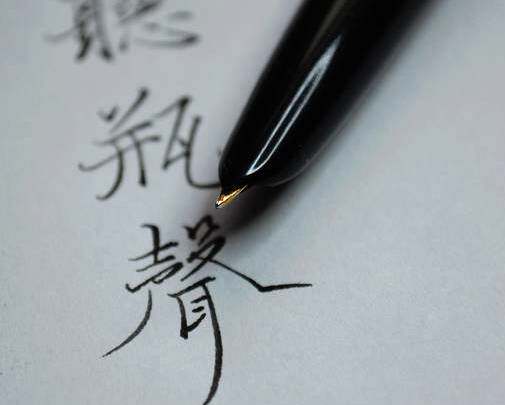 聽
瓶
聲